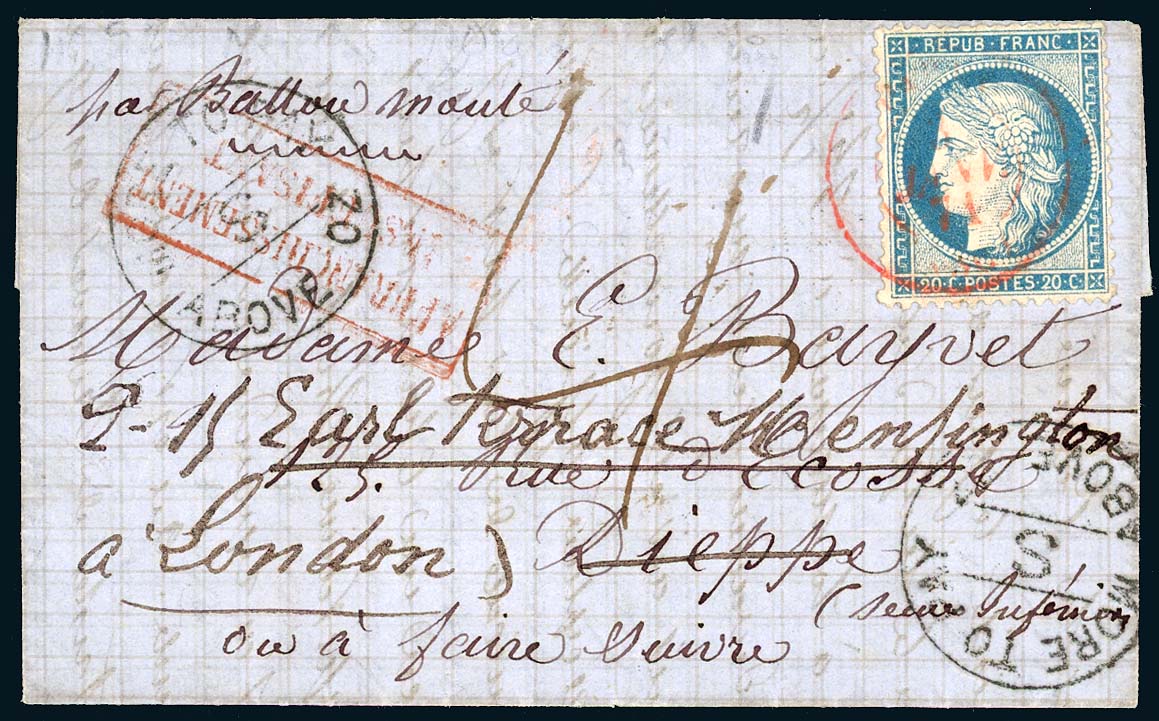 par Ballon monté
REPUB·FRANC·
20·C·POSTES·20·C·
AFFRANCHISSEMENT
INSUFFISANT
ABOVE
Madame E. Bayvet
2-15 Earl terrace Kensington
rue d'Ecosse
à London) Dieppe
(Seine Inférieure
ou à faire suivre
MORE TO PAY
S
ABOVE